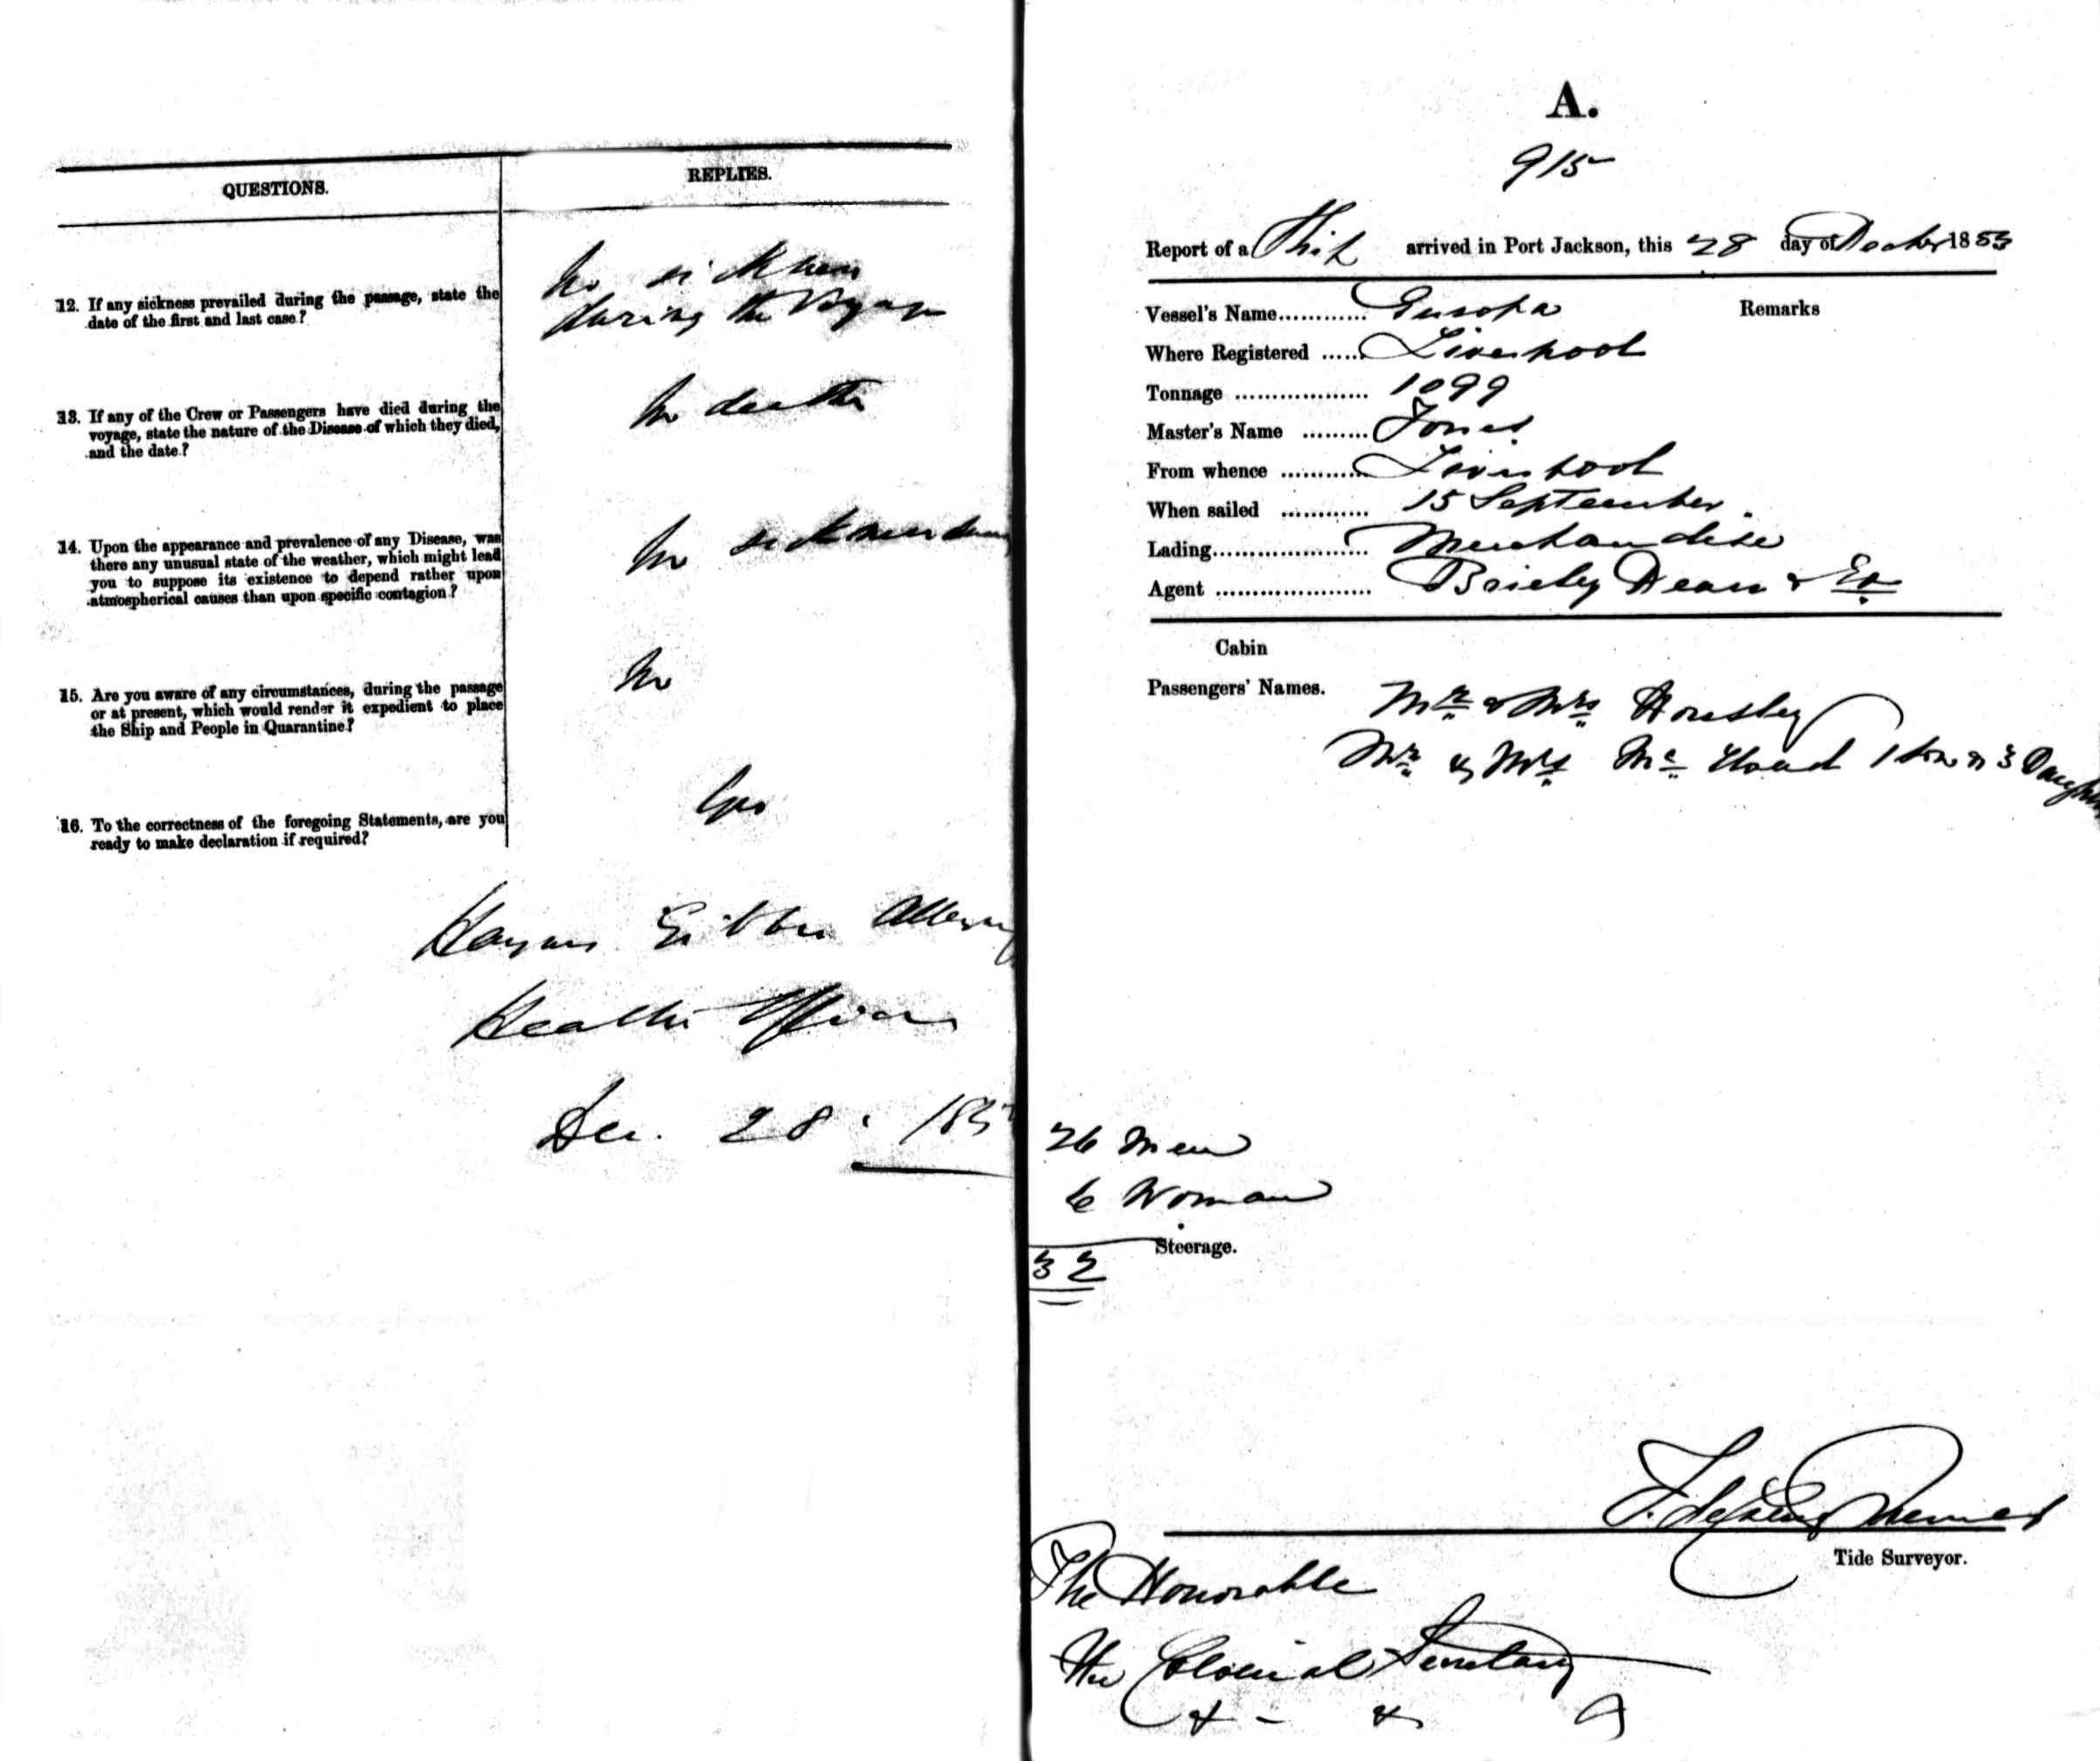 QUESTIONS.
REPLIES.
12. If any sickness prevailed during the passage, state the
date of the first and last case?
No sickness
during the Voyage
13. If any of the Crew or Passengers have died during the
voyage, state the nature of the Disease of which they died,
and the date?
No death
14. Upon the appearance and prevalence of any Disease, was
there any unusual state of the weather, which might lead
you to suppose its existence to depend rather upon
atmospherical causes than upon specific contagion?
No sickness
15. Are you aware of any circumstances, during the passage
or at present, which would render it expedient to place
the Ship and People in Quarantine?
No
16. To the correctness of the foregoing Statements, are you
ready to make declaration if required?
Yes
Haynes Gibbes Alleyne
Health Officer
Dec. 28. 185
A.
915
Report of a Ship arrived in Port Jackson, this 28 day of Decber 1853
Vessel's Name............ Europa
Remarks
Where Registered ...... Liverpool
Tonnage .................. 1099
Master's Name ......... Jones
From whence ............ Liverpool
When sailed ............ 15 September.
Lading..................... Merchandise
Agent ..................... Brierly Dean & Co
Cabin
Passengers' Names.
Mr & Mrs Housley
Mr & Mrs Mc 1 Son & 3 Daughters
26 Men
6 Woman
Steerage.
32
Tide Surveyor.
The Honorable
The Colonial Secretary